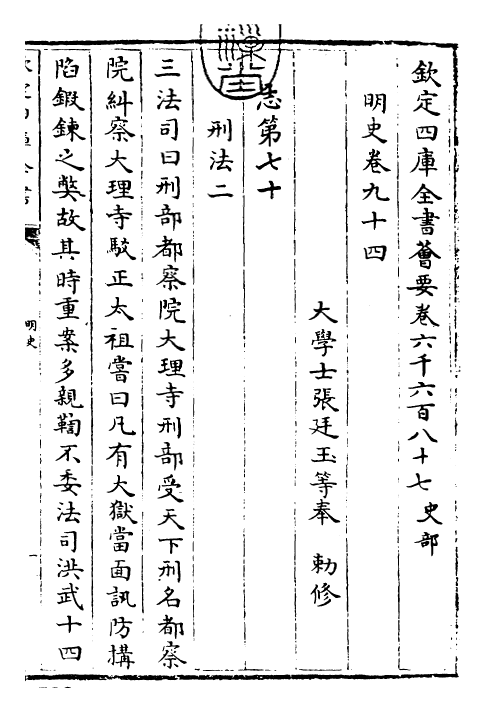 欽定四庫全書薈要卷六千六百八十七 史部
明史卷九十四
大學士張廷玉等奉 勅修
志第七十
刑法二
三法司曰刑部都察院大理寺刑部受天下刑名都察
院糾察大理寺駁正太祖嘗曰凡有大獄當面訊防搆
陷鍜鍊之弊故其時重案多親鞫不委法司洪武十四
明史
一